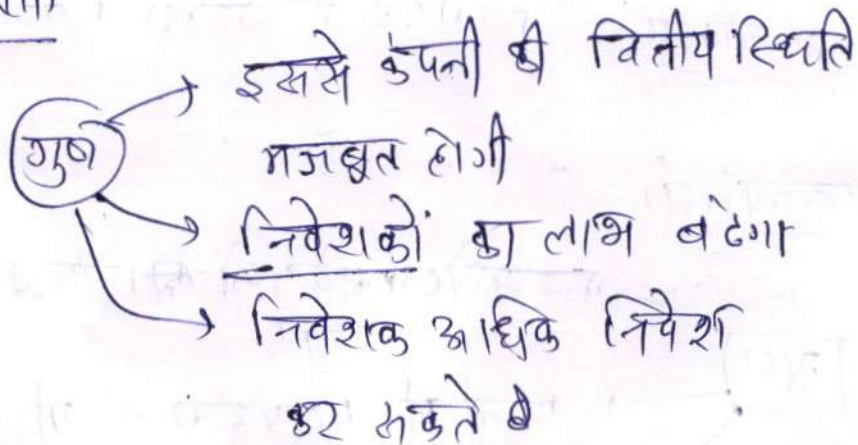 गुण
इससे कंपनी की वित्तीय स्थिति
मजबूत होगी
निवेशकों का लाभ बढेगा
निवेशक अधिक निवेश
कर सकते है